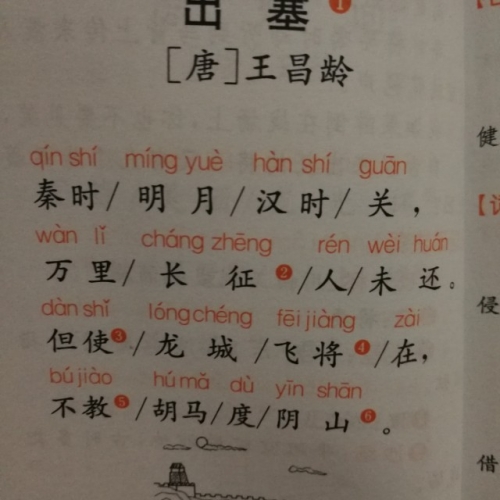 出塞❶
[唐]王昌龄
qín shí míng yuè hàn shí guān
秦时/明月/汉时/关，
wàn lǐ cháng zhēng rén wèi huán
万里/长征❷/人/未还。
dàn shǐ lóng chéng fēi jiàng zài
但使❸/龙城/飞将❹/在，
bú jiào hú mǎ dù yīn shān
不教❺/胡马/度/阴山❻。
健
侵
借